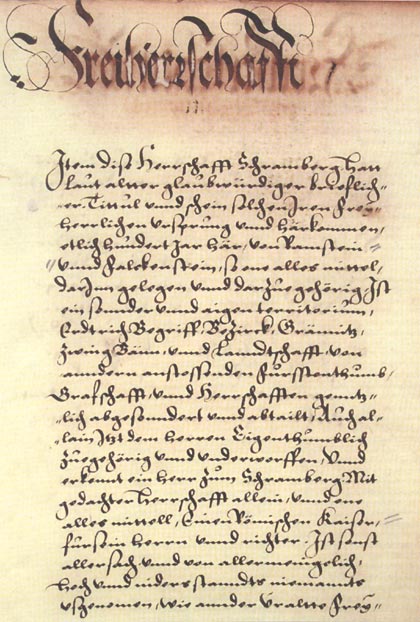 Freiherrschafft /
Item dise Herrschafft Schramberg hatt
laut altter glaubwürdiger brieflich-
er Tittul unnd schein solchen Iren Frey-
herrlichen ursprung und härkommen,
etlich hundert Jar här, von Ramstein
unnd Falckenstein, so one alles mittel,
darjnn gelegen und darzue gehörig. Ist
ein sonder und aigen territorium,
Begriff, Bezirk, Gränitz,
Zwing Bänn, unnd Lanndtschafft, von
anndern anstossenden Fursstenthumb,
Grafschafft, unnd Herrschafften genntz-
lich abgesondert unnd abtailt, Auch al-
lain Jtzt dem herren Eigenthumblich
zuegehörig unnd underworffen, Unnd
erkennt ein herr zum Schramberg Mit
gedachter Herrschafft allein, unnd one
alles mittell, Einen Römischen Kaiser,
für sein herrn unnd richter. Ist sonst
aller sach, und von allermenigelich,
hoch unnd niders standts niemants
usgenomen, wie annder Uraltte Frey-